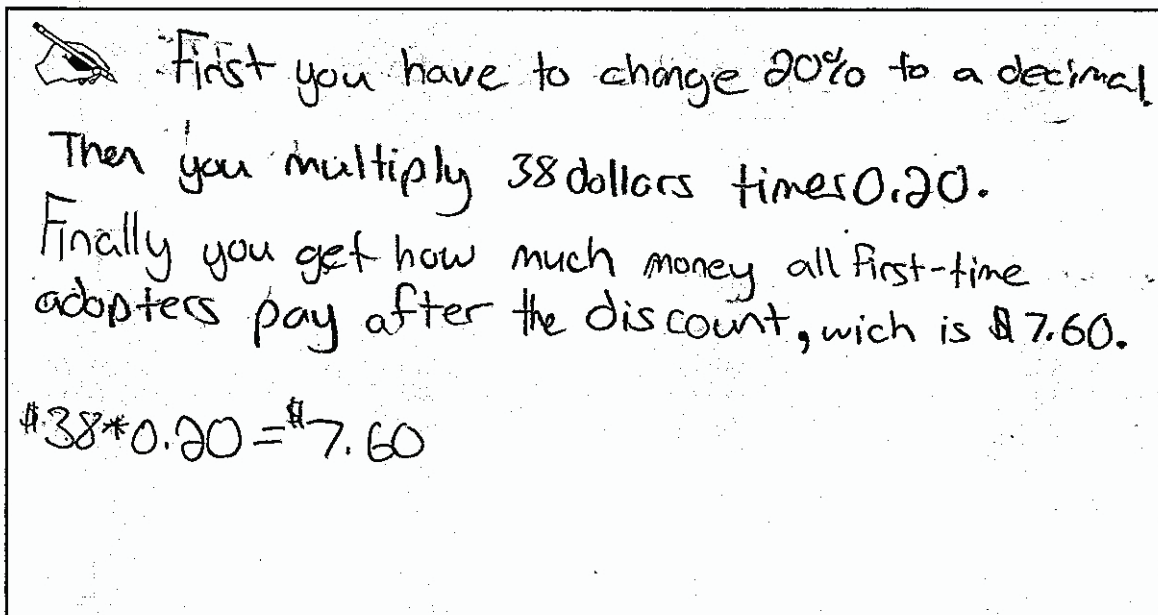 First you have to change 20% to a decimal.
Then you multiply 38 dollars times 0.20.
Finally you get how much money all first-time
adopters pay after the discount, wich is $7.60.
$38*0.20=$7.60